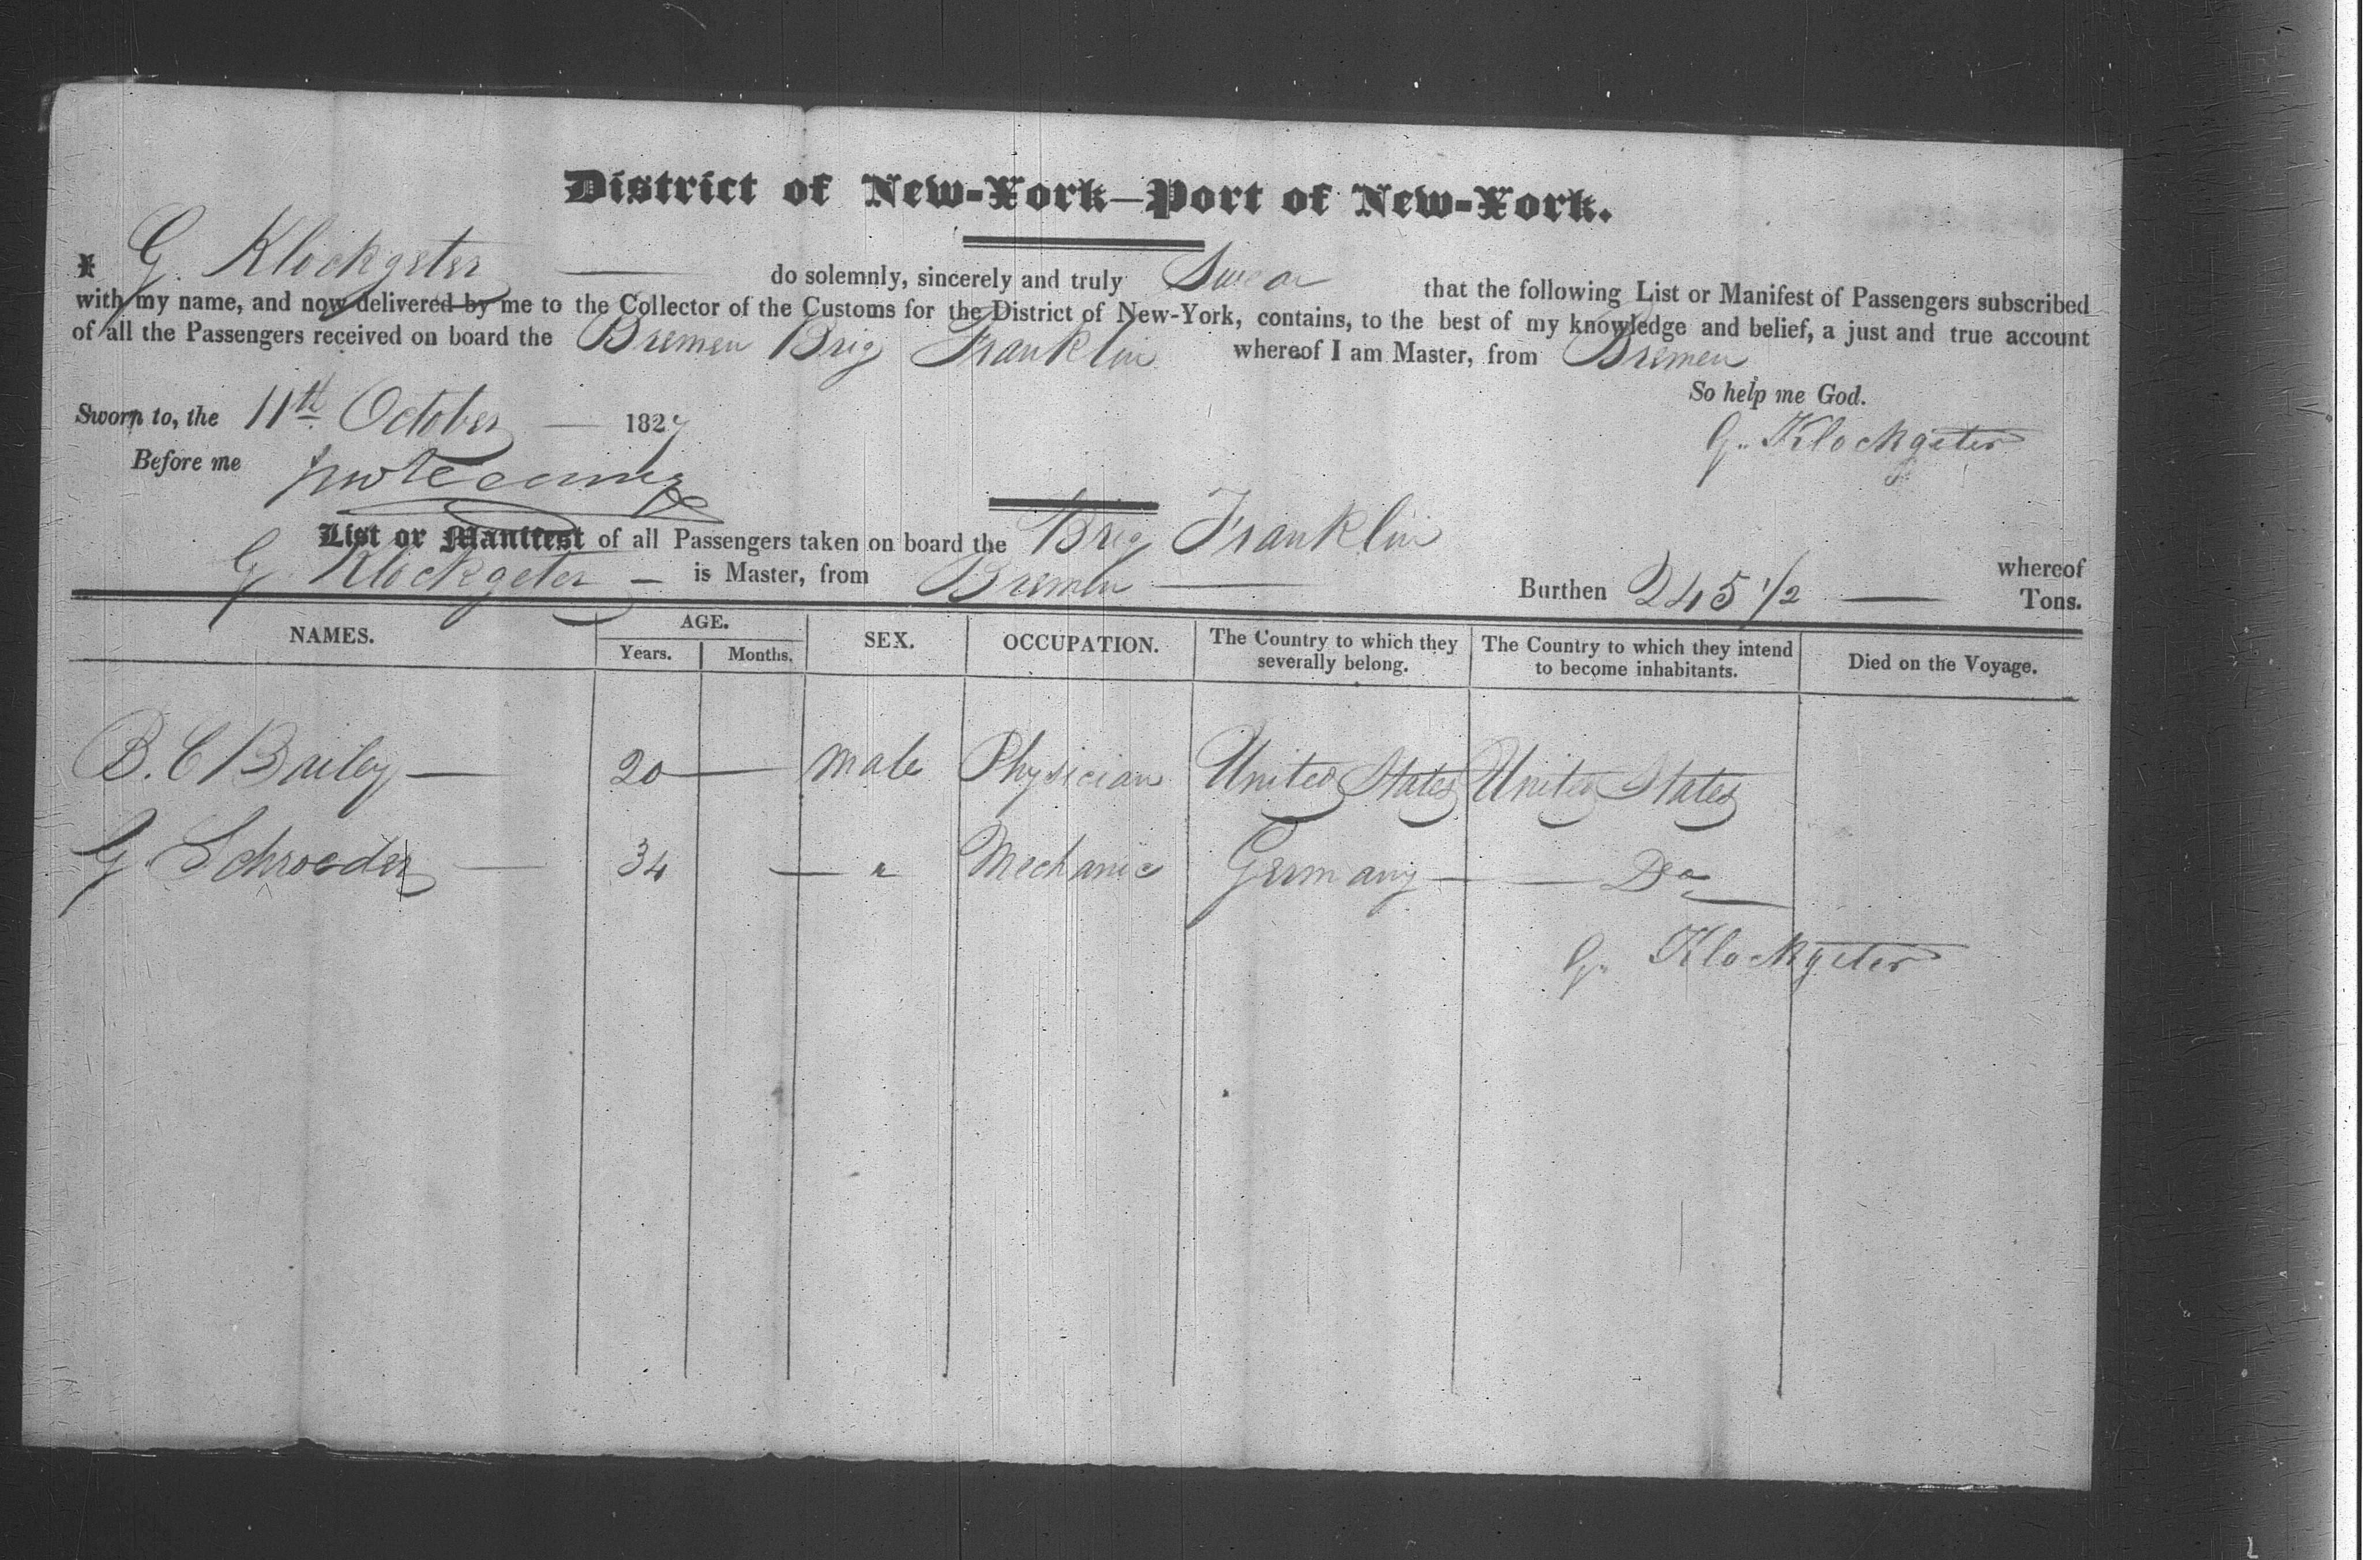 District of New-York—Port of New-York.
I G. Klockgeter do solemnly, sincerely and truly Swear that the following List or Manifest of Passengers subscribed
with my name, and now delivered by me to the Collector of the Customs for the District of New-York, contains, to the best of my knowledge and belief, a just and true account
of all the Passengers received on board the Bremen Brig Franklin whereof I am Master, from Bremen
So help me God.
Sworn to, the 11th October 1827
G. Klockgeter
Before me
List or Manifest of all Passengers taken on board the Brig Franklin whereof
G. Klockgeter is Master, from Bremen Burthen 245 1/2 Tons.
NAMES. AGE. SEX. OCCUPATION. The Country to which they severally belong. The Country to which they intend to become inhabitants. Died on the Voyage.
Years. Months.
B. C Bailey — 20 — male Physician United States United States
G. Schroeder — 34 — " Mechanic Germany — Do
G. Klockgeter